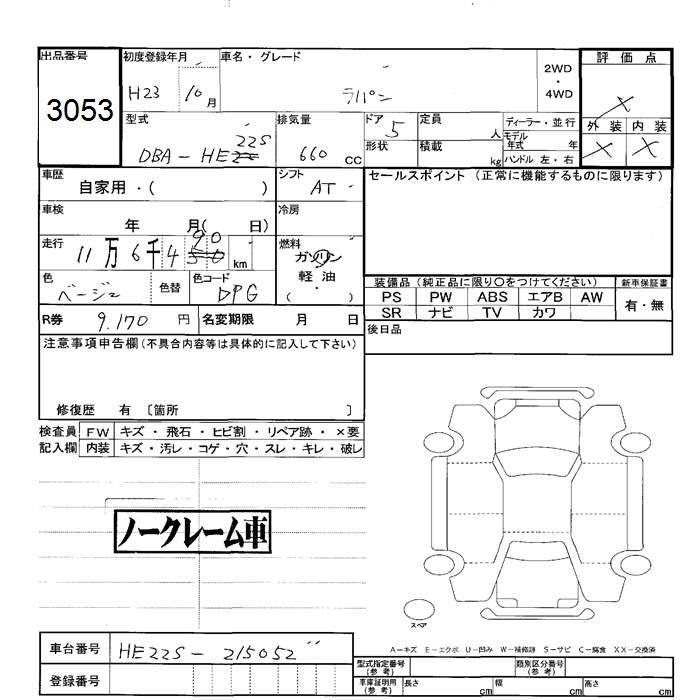 出品番号 初度登録年月 車名・グレード 2WD・4WD 評価点
3053 H23 10月 ラパン X
型式 排気量 ドア 5 定員 人 ディーラー・並行 外装 内装
DBA-HE22S 660 cc 形状 積載 kg モデル年式 年 X X
ハンドル 左・右
車歴 自家用・( ) シフト AT セールスポイント (正常に機能するものに限ります)
車検 年 月( 日) 冷房
走行 11万6千490 km 燃料 ガソリン
軽・油
( )
色 ベージュ 色替 色コード DPG
装備品 (純正品に限り○をつけてください) 新車保証書
PS PW ABS エアB AW 有・無
SR ナビ TV カワ
R券 9.170 円 名変期限 月 日 後日品
注意事項申告欄(不具合内容等は具体的に記入して下さい)
修復歴 有 〔箇所 〕
検査員 FW キズ・飛石・ヒビ割・リペア跡・×要
記入欄 内装 キズ・汚レ・コゲ・穴・スレ・キレ・破レ
ノークレーム車
スペア
A-キズ E-エクボ U-凹み W-補修跡 S-サビ C-腐食 XX-交換済
車台番号 HE22S-215052
登録番号
型式指定番号(参考) 類別区分番号(参考)
車庫証明用(参考) 長さ cm 幅 cm 高さ cm